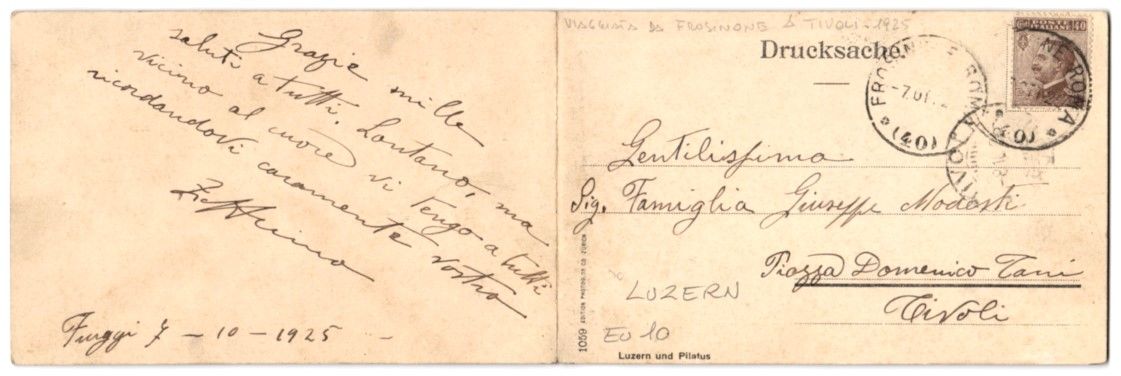 Grazie mille
saluti a tutti. Lontano, ma
vicino al cuore vi tengo a tutti
ricordandovi caramente vostro
Fiuggi 7 - 10 - 1925 -
VIAGGIATA DA FROSINONE A TIVOLI - 1925
Drucksache
POSTE ITALIANE 40
FROSINONE ROMA
-7.
* (40) *
NE ROMA
TIVOLI
Gentilissima
Sig. Famiglia Giuseppe Modesti
Piazza Domenico Tani
Tivoli
LUZERN
EU 10
Luzern und Pilatus
1059 EDITION PHOTOGLOB CO. ZÜRICH